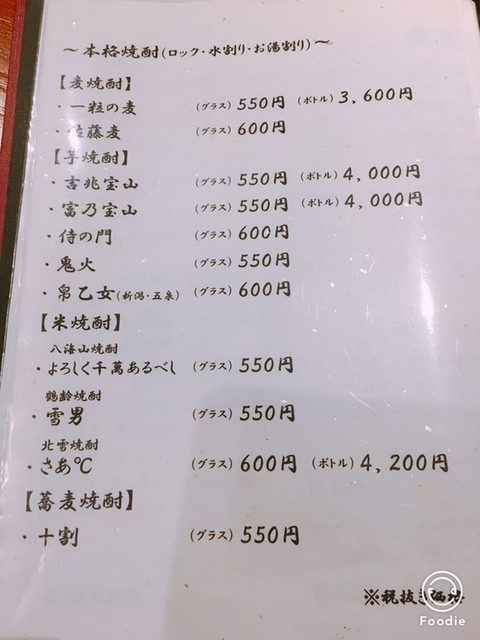 ～本格焼酎(ロック・水割り・お湯割り)～
【麦焼酎】
・一粒の麦 (グラス) 550円 (ボトル) 3,600円
・佐藤麦 (グラス) 600円
【芋焼酎】
・吉兆宝山 (グラス) 550円 (ボトル) 4,000円
・富乃宝山 (グラス) 550円 (ボトル) 4,000円
・侍の門 (グラス) 600円
・鬼火 (グラス) 550円
・帛乙女(新潟・五泉) (グラス) 600円
【米焼酎】
八海山焼酎
・よろしく千萬あるべし (グラス) 550円
鶴齢焼酎
・雪男 (グラス) 550円
北雪焼酎
・さあ℃ (グラス) 600円 (ボトル) 4,200円
【蕎麦焼酎】
・十割 (グラス) 550円
※税抜き価格
Foodie